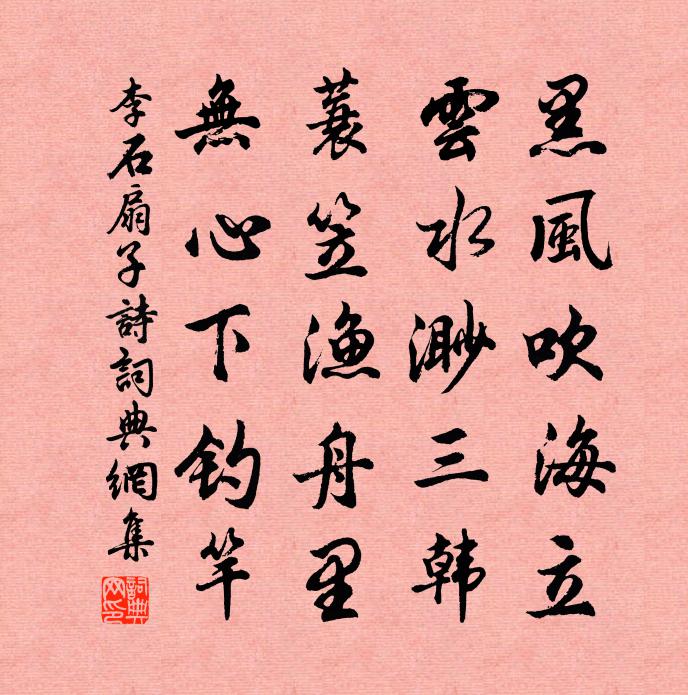 黑風吹海立
雲水渺三韩
蓑笠漁舟里
無心下釣竿
李石扇子詩詞典網集
詞典網印